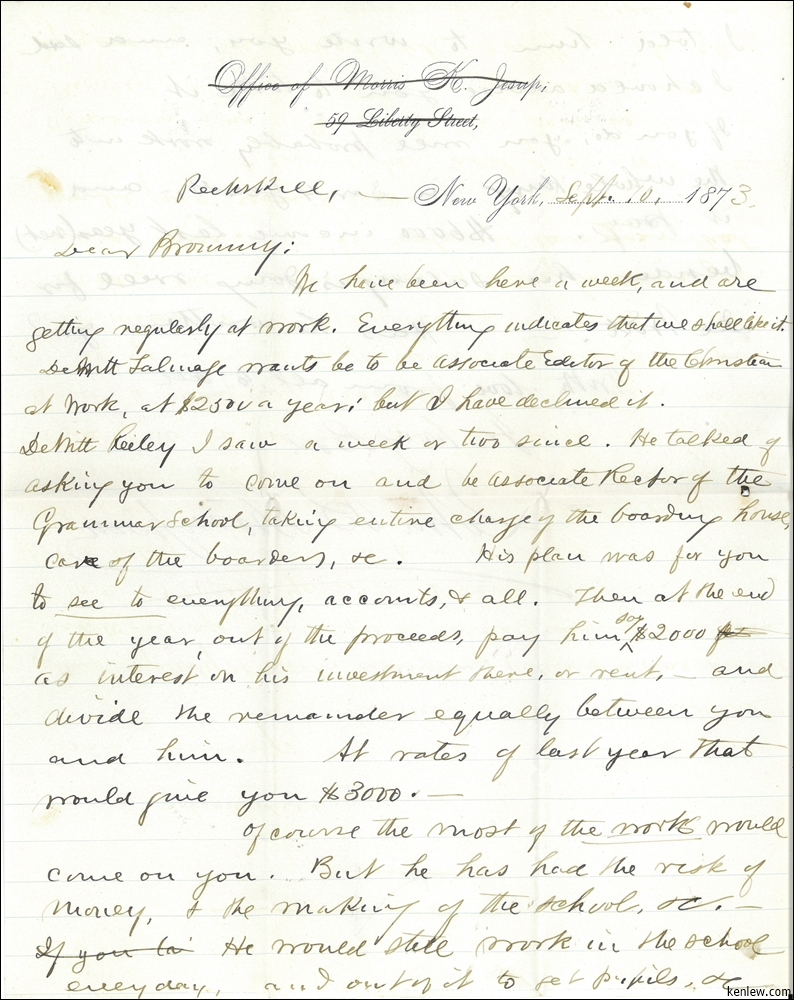 Office of Morris K. Jesup,
59 Liberty Street,
Peekskill, — New York, Sept. 10, 1873.
Dear Browny:
We have been here a week, and are
getting regularly at work. Everything indicates that we shall like it.
DeWitt Talmage wants be to be Associate Editor of the Christian
at Work, at $2500 a year; but I have declined it.
DeWitt Reiley I saw a week or two since. He talked of
asking you to come on and be Associate Rector of the
Grammar School, taking entire charge of the boarding house,
care of the boarders, &c. His plan was for you
to see to everything, accounts, & all. Then at the end
of the year, out of the proceeds, pay him say $2000
as interest on his investment there, or rent, — and
divide the remainder equally between you
and him. At rates of last year that
would give you $3000. —
Of course the most of the work would
come on you. But he has had the risk of
money, & the making of the school, &c. —
If you He would still work in the school
every day, and out of it to get pupils, &c
kenlew.com